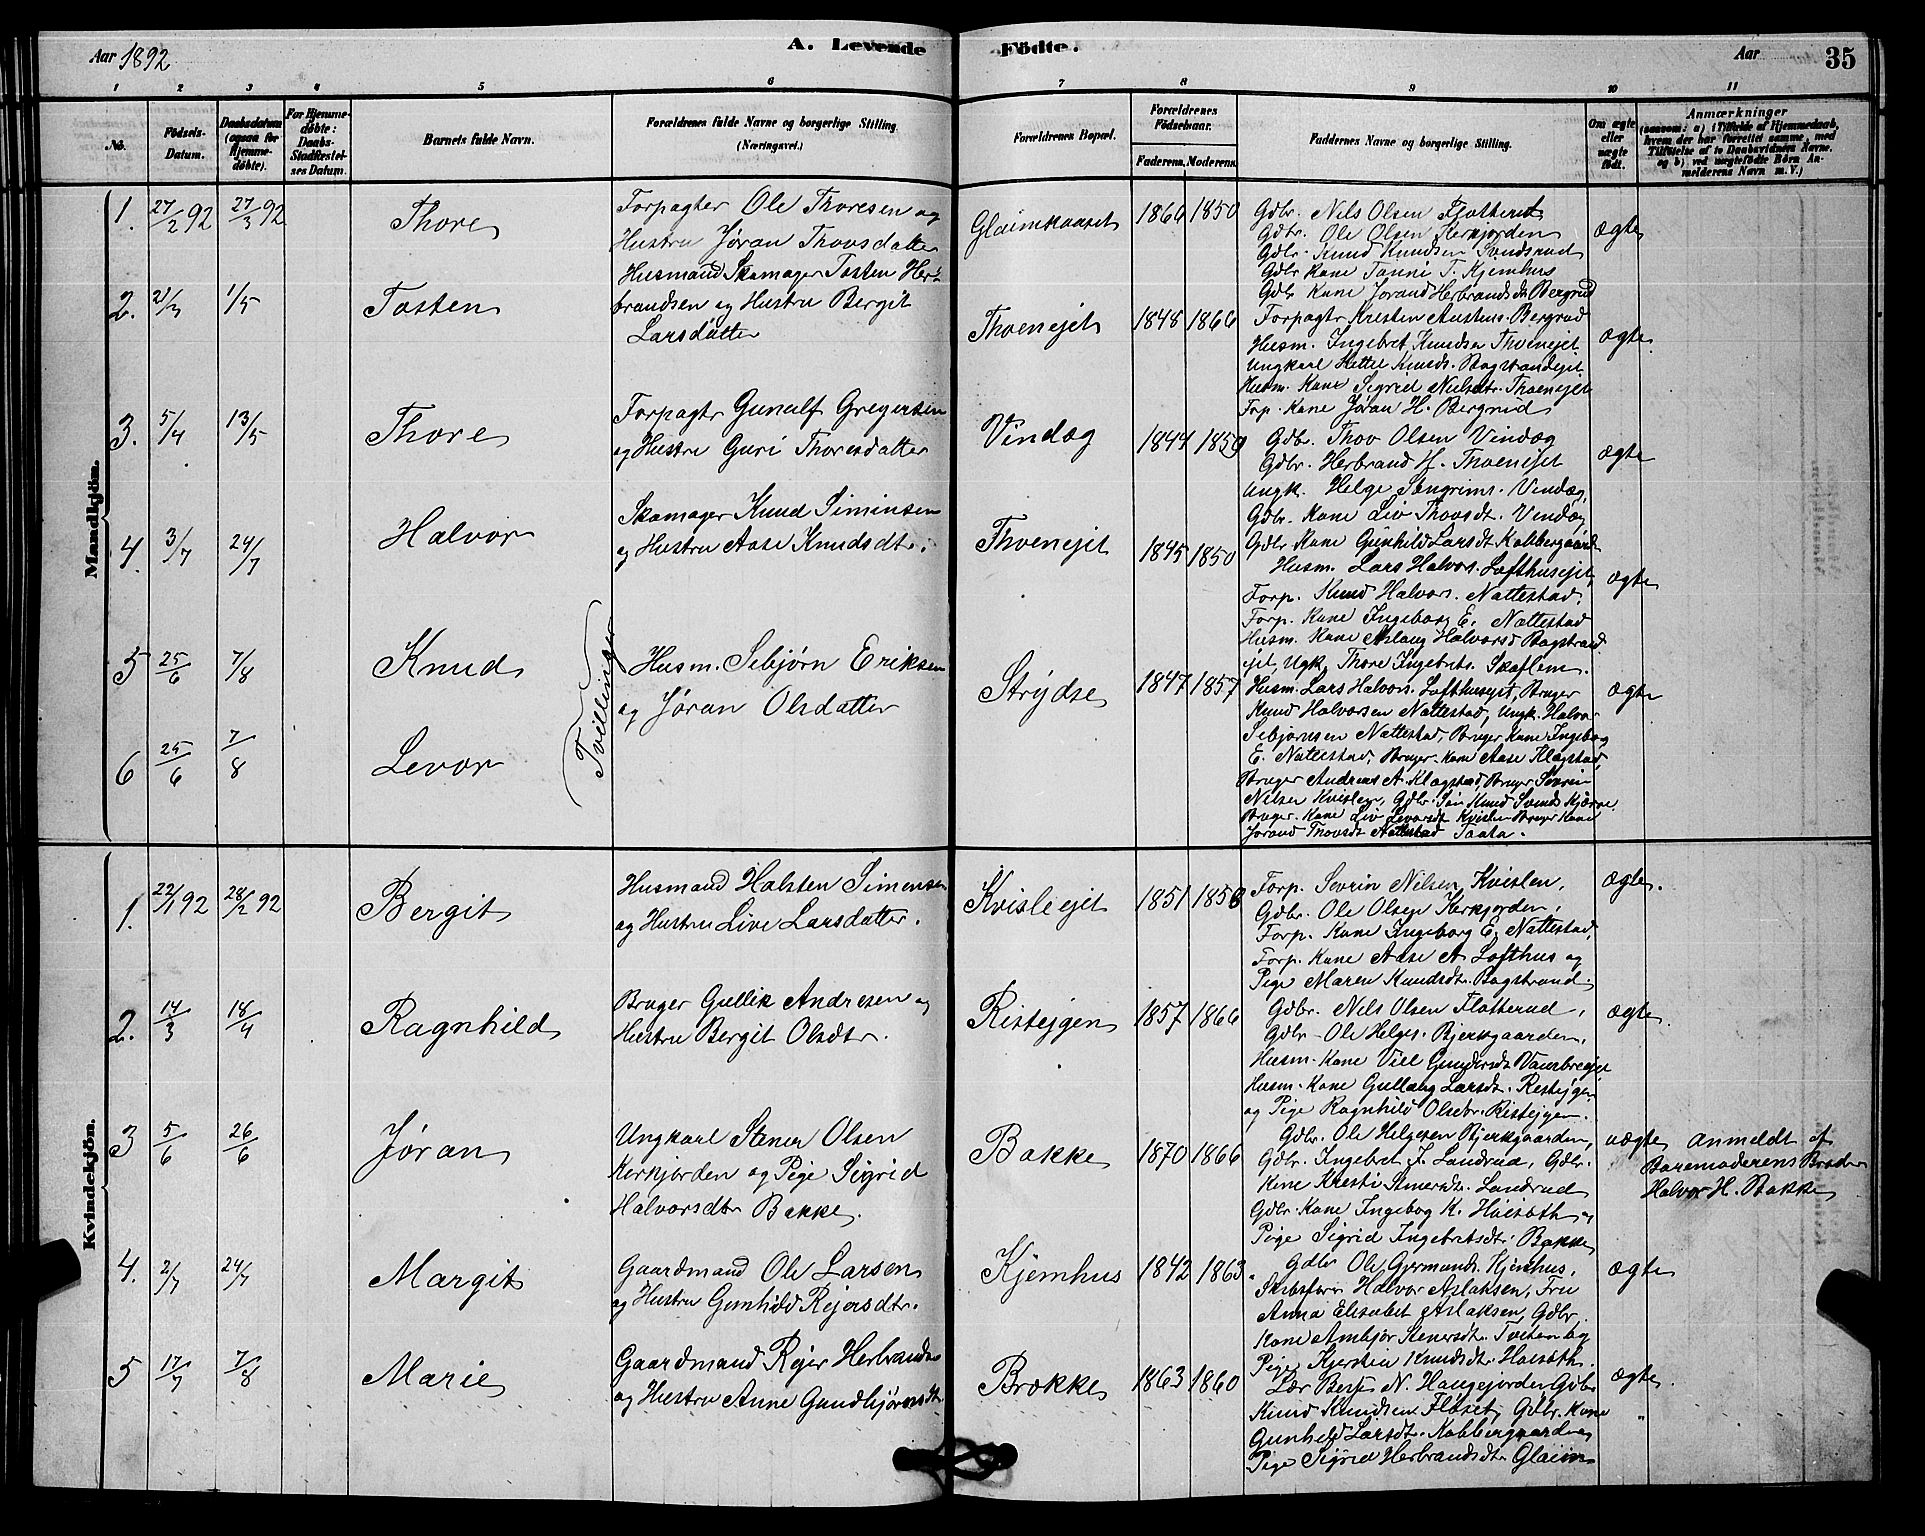 Aar 1892
A. Levende
Födte.
Aar
35
1
2
3
4
5
6
7
8
9
10
11
No.
Födsels-
Datum.
Daabsdatum
(ogsaa for
Hjemme-
döbte).
For Hjemme-
döbte:
Daabs-
Stadfæstel-
ses Datum.
Barnets fulde Navn.
Forældrenes fulde Navne og borgerlige Stilling
(Næringsvei.)
Forældrenes Bopæl.
Forældrenes
Födselsaar.
Faderens.
Moderens.
Faddernes Navne og borgerlige Stilling.
Om ægte
eller
uægte
födt.
Anmærkninger
(saasom: a) i Tilfælde af Hjemmedaab,
hvem der har forrettet samme, med
Tilföielse af to Daabsvidners Navne,
og b) ved uægtefödte Börn An-
melderens Navn m. V.)
Mandkjön.
1.
27/2 92
27/3 92
Thore
Forpagter Ole Thoresen og
Hustru Jøran Thovsdatter
Glaimkaaset
1866
1850
Gdbr. Nils Olsen Flatterud
Gdbr. Ole Olsen Kerkjorden
Gdbr. Knud Knudsen Svendsrud
Gdbr Kane Tonni T. Kjemhus
Gdbr Kane Jorand Herbrandsdt. Bergrud
ægte
2.
1/5
Tosten
Husmand Skomager Tosten Her-
brandsen og Hustru Bergit
Larsdatter
Thoenejet
1848
1866
Forpagtr Kresten Austens. Bergrud
Husm. Ingebret Knudsen Thoenejet
Ungkarl Kittel Knuds. Bagstrandejet
Husm. Kane Sigrid Nielsdtr. Thoenejet
Forp. Kane Jøran H. Bergrud
ægte.
3.
5/4
13/5
Thore
Forpagtr Gunulf Gregersen
og Hustru Guri Thoresdatter
Vindæg
1844
1850
Gdbr. Thov Olsen Vindæg
Gdbr. Herbrand H. Thoenejet
Ungk. Helge Sengrims. Vindæg,
Gdbr. Kane Liv Thovsdt. Vindæg
Gdbr Kane Gunhild Larsdt. Kobbergaarden
ægte
4.
3/7
24/7
Halvor
Skomager Knud Siminsen
og Hustru Aase Knudsdtr.
Thoenejet
1845
1850
Husm. Lars Halvors. Lofthusejet,
Forp. Knud Halvors. Nattestad,
Forp. Kane Ingeborg E. Nattestad
Husm. Kane Aslaug Halvorsd Bagstrand
ejet, Ugk. Thore Ingebrts. Skaflem.
ægte
5
25/6
7/8
Knud
Tvillinger
Husm. Sebjørn Eriksen
og Jøran Olsdatter
Strydse
1847
1857
Husm. Lars Halvors. Lofthusejet, Bruger
Knud Halvorsen Nattestad, Ungk. Halvor
Sebjørnsen Nattestad, Bruger Kane Ingeborg
E. Nattestad, Bruger-kone Aase Klogstad,
ægte
6
25/6
7/8
Levor
Bruger Andreas A. Klogstad, Bruger Sevrin
Nilsen Kvislen, Gdbr. Søn Knud Svends Kjærre
Bruger. Kone Liv Levorsdt Kvislen Bruger Kane
Jorand Thovsdt Nattestad Taata.
Kvindekjön.
1.
22/1 92
28/2 92
Bergit
Husmand Halsten Simensen
og Hustru Live Larsdatter.
Kvislejet
1851
1858
Forp. Sevrin Nilsen Kvislen,
Gdbr. Ole Olsen Kerkjorden,
Forp. Kane Ingeborg E. Nattestad,
Forp. Kane Aase A Lofthus og
Pige Maren Knudsdt. Bagstrand
ægte.
2.
14/3
18/4
Ragnhild
Bruger Gullik Andresen og
Hustru Bergit Olsdtr.
Ristejgen
1857
1866
Gdbr. Nils Olsen Flatterud,
Gdbr. Ole Helges. Bjerkgaarden,
Husm. Kane Vill Gundersdt
Husm. Kane Gullaug Larsdt. Ristejgen
og Pige Ragnhild Olsdtr. Ristejgen.
ægte.
3
5/6
26/6
Jøran
Ungkarl Stener Olsen
Kerkjorden og Pige Sigrid
Halvorsdtr Bakke.
Bakke
1870
1866
Gdbr. Ole Helgesen Bjerkgaarden,
Gdbr. Ingebret J. Landrud, Gdbr.
Kone Kresti Stenersdt. Landrud
Gdbr. Kane Ingebog K. Hvisoth og
Pige Sigrid Ingebretsdt. Bakke
uægte
Anmeldt af
Barnemoderens Broder
Halvor H. Bakke
4.
2/7
24/7
Margit
Gaardmand Ole Larsen
og Hustru Gunhild Rejersdtr.
Kjemhus
1842
1863
Gdbr Ole Germunds. Kjemhus,
Skibsfører Halvor Aslaksen, Fru
Anna Elisabet Aslaksen, Gdbr.
Kane Ambjør Stenersdt. Tveten og
Pige Kjerstin Knudsdt. Hvisoth.
ægte
5
17/7
7/8
Marie
Gaardmand Rejer Herbrands.
og Hustru Anne Gundbjørnsdt.
Brokke
1863
1860
Lær Berg. N. Haugejorden Gdbr
Knud Knudsen Floset, Gdbr. Kane
Gunhild Larsdt. Kobbergaarden og
Pige Sigrid Herbrandsdt. Glaim
ægte.